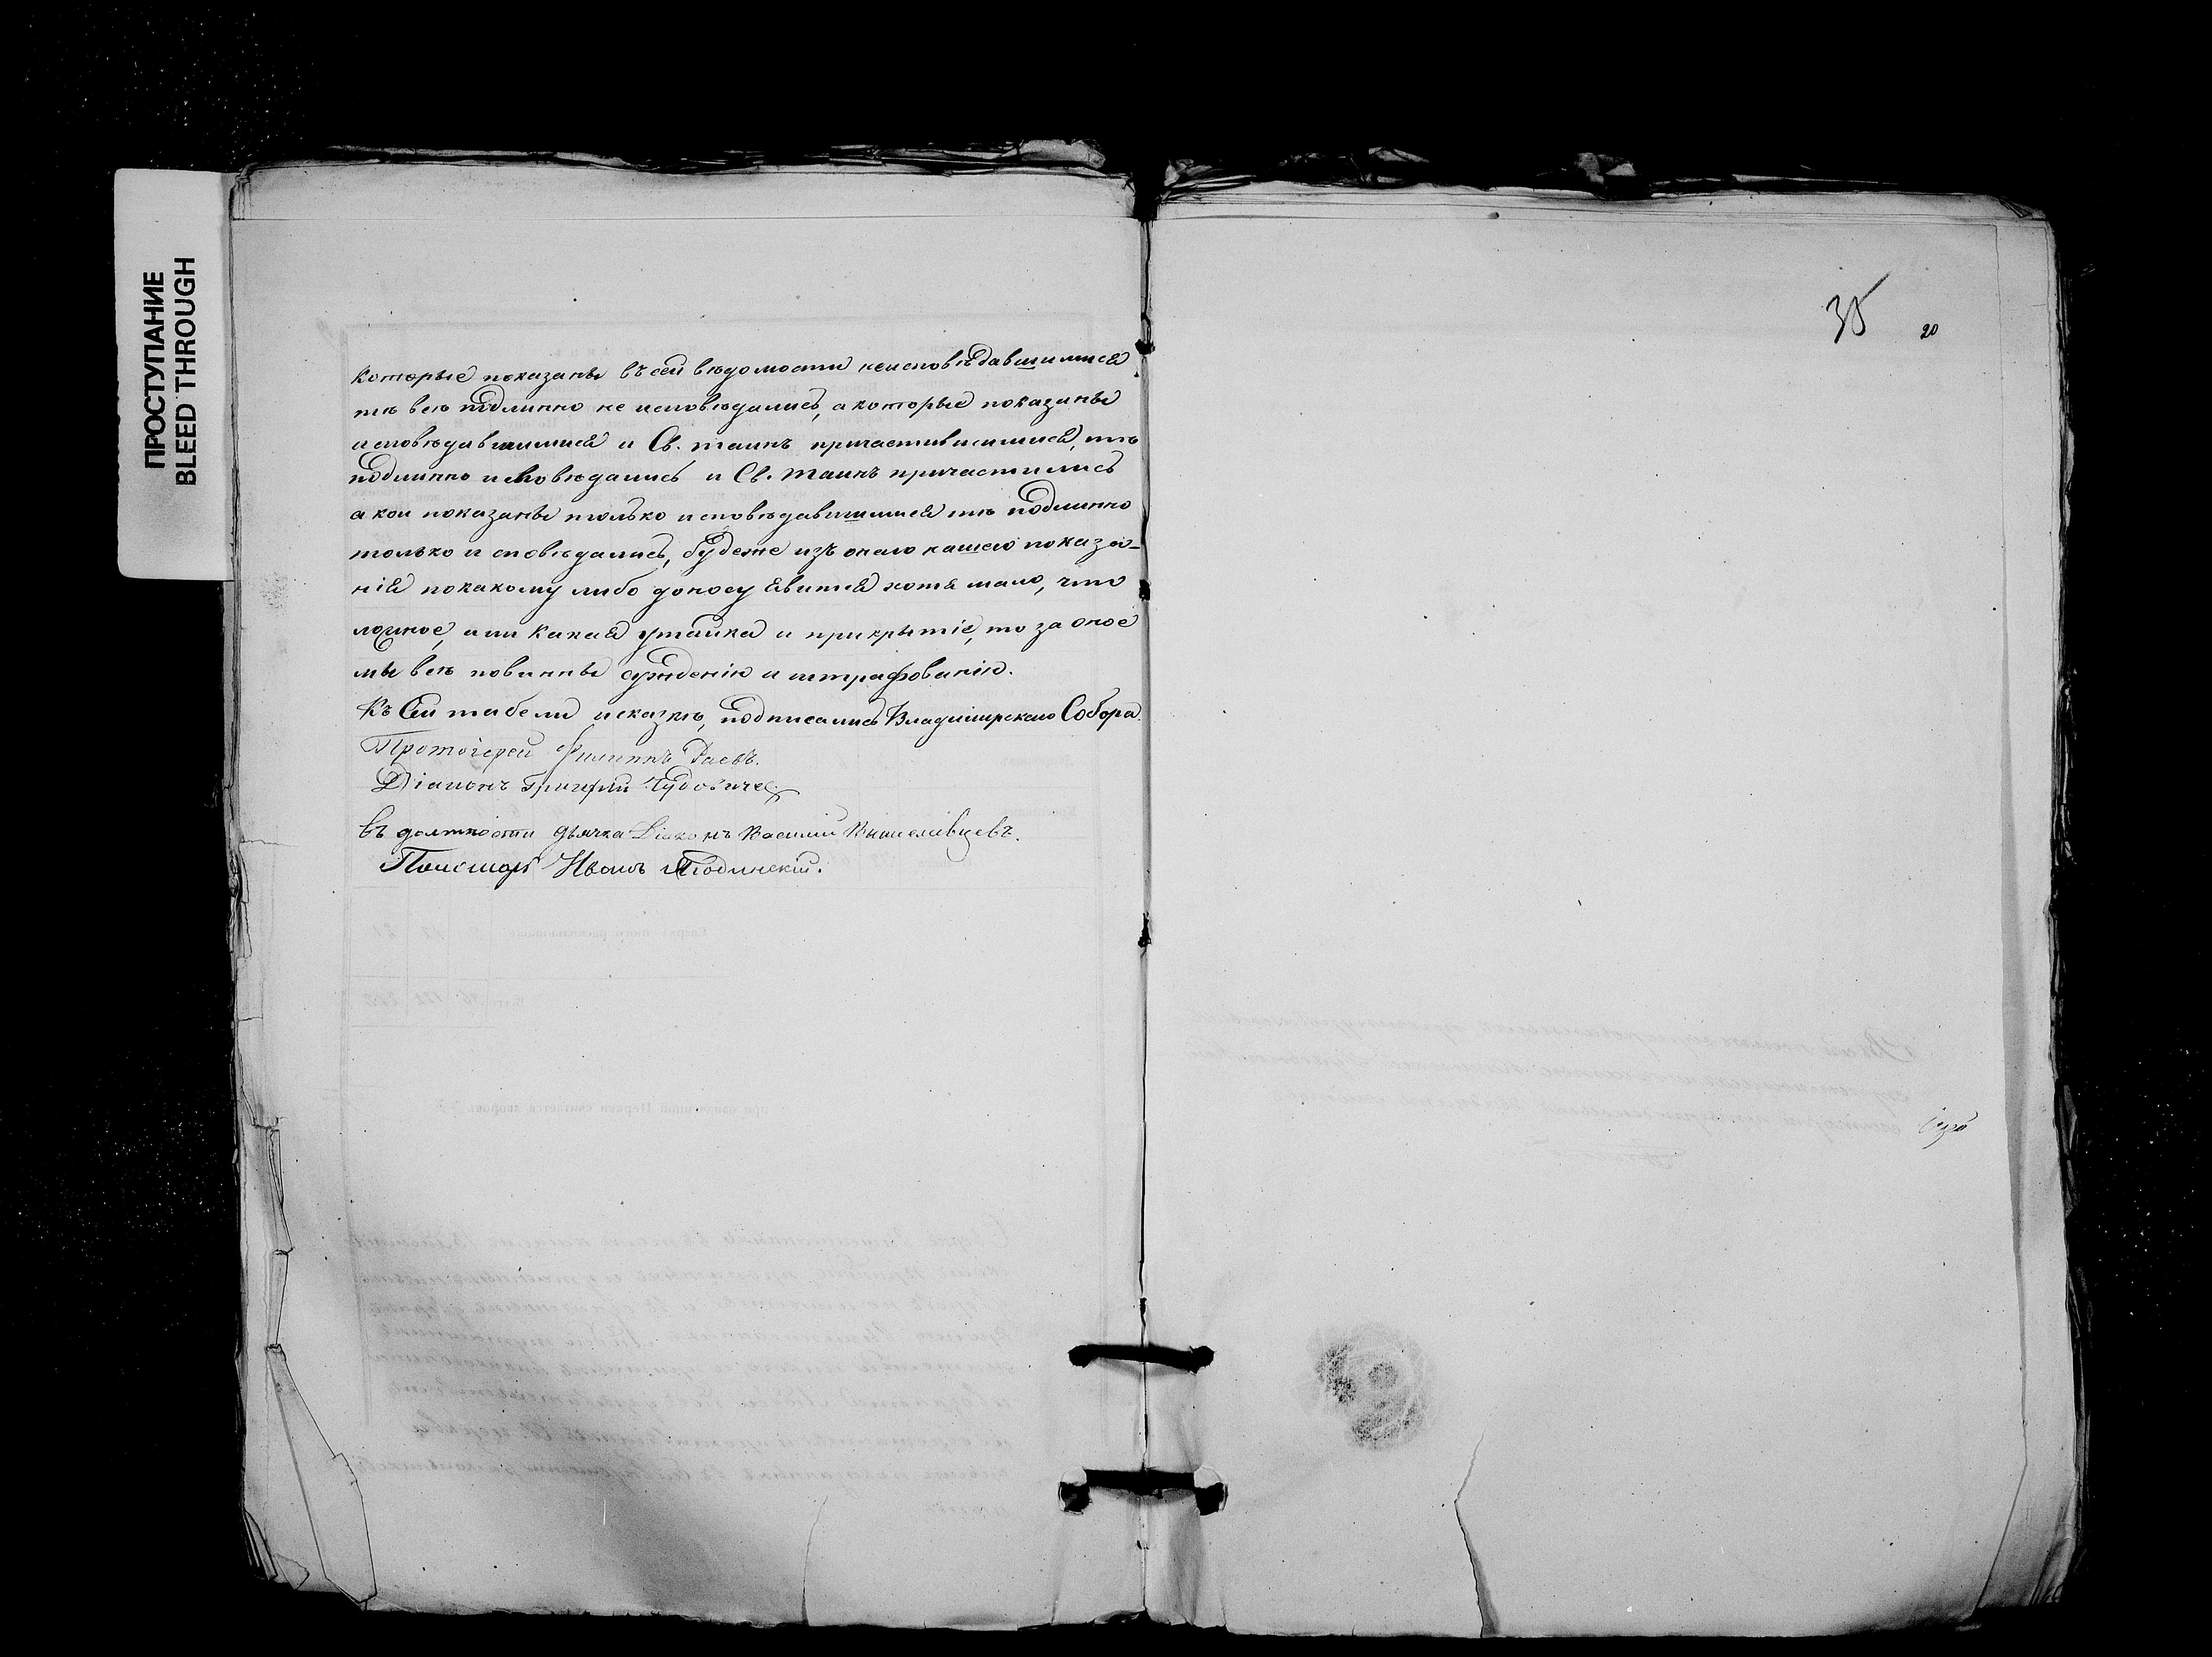 ПРОСТУПАНИЕ
BLEED THROUGH
которые показаны въ сей вѣдомости неисповѣдавшимися
тѣ всѣ подлинно не исповѣдались, а которые показаны
исповѣдавшимися и Св. таинъ причастившимися, тѣ
подлинно исповѣдались и Св. таинъ причастились
а кои показаны только исповѣдавшимися тѣ подлинно
только исповѣдались, будеже изъ онаго нашего показа-
нія по какому либо доносу явится хотя мало, что
ложное, или какая утайка и прикрытіе, то за оное
мы всѣ повинны сужденію и штрафованію.
Къ сей табели и сказкѣ, подписались Владимірскаго Собора
Протоіерей Филиппъ Раевъ.
Діаконъ Григорій
въ должности дьячка Діаконъ Василій Вышеславцевъ.
Пономарь Иванъ
35
20